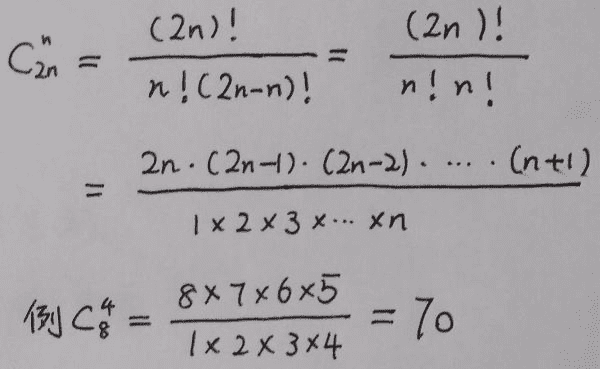 C_{2n}^{n} = \frac{(2n)!}{n!(2n-n)!} = \frac{(2n)!}{n!n!}
= \frac{2n·(2n-1)·(2n-2)·…·(n+1)}{1×2×3×…×n}
例 C_{8}^{4} = \frac{8×7×6×5}{1×2×3×4} = 70